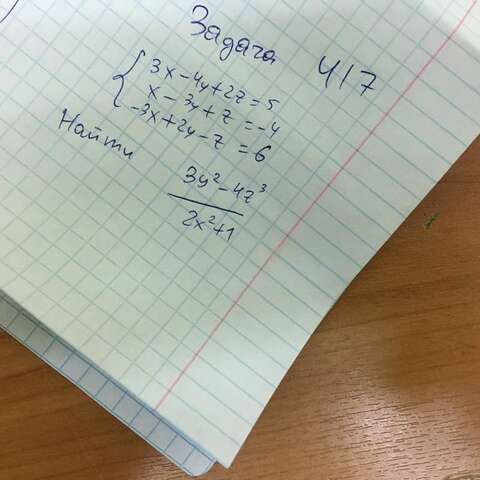 Задача 417
{ 3x - 4y + 2z = 5
x - 3y + z = -4
-3x + 2y - z = 6
Найти
3y² - 4z³
2x² + 1